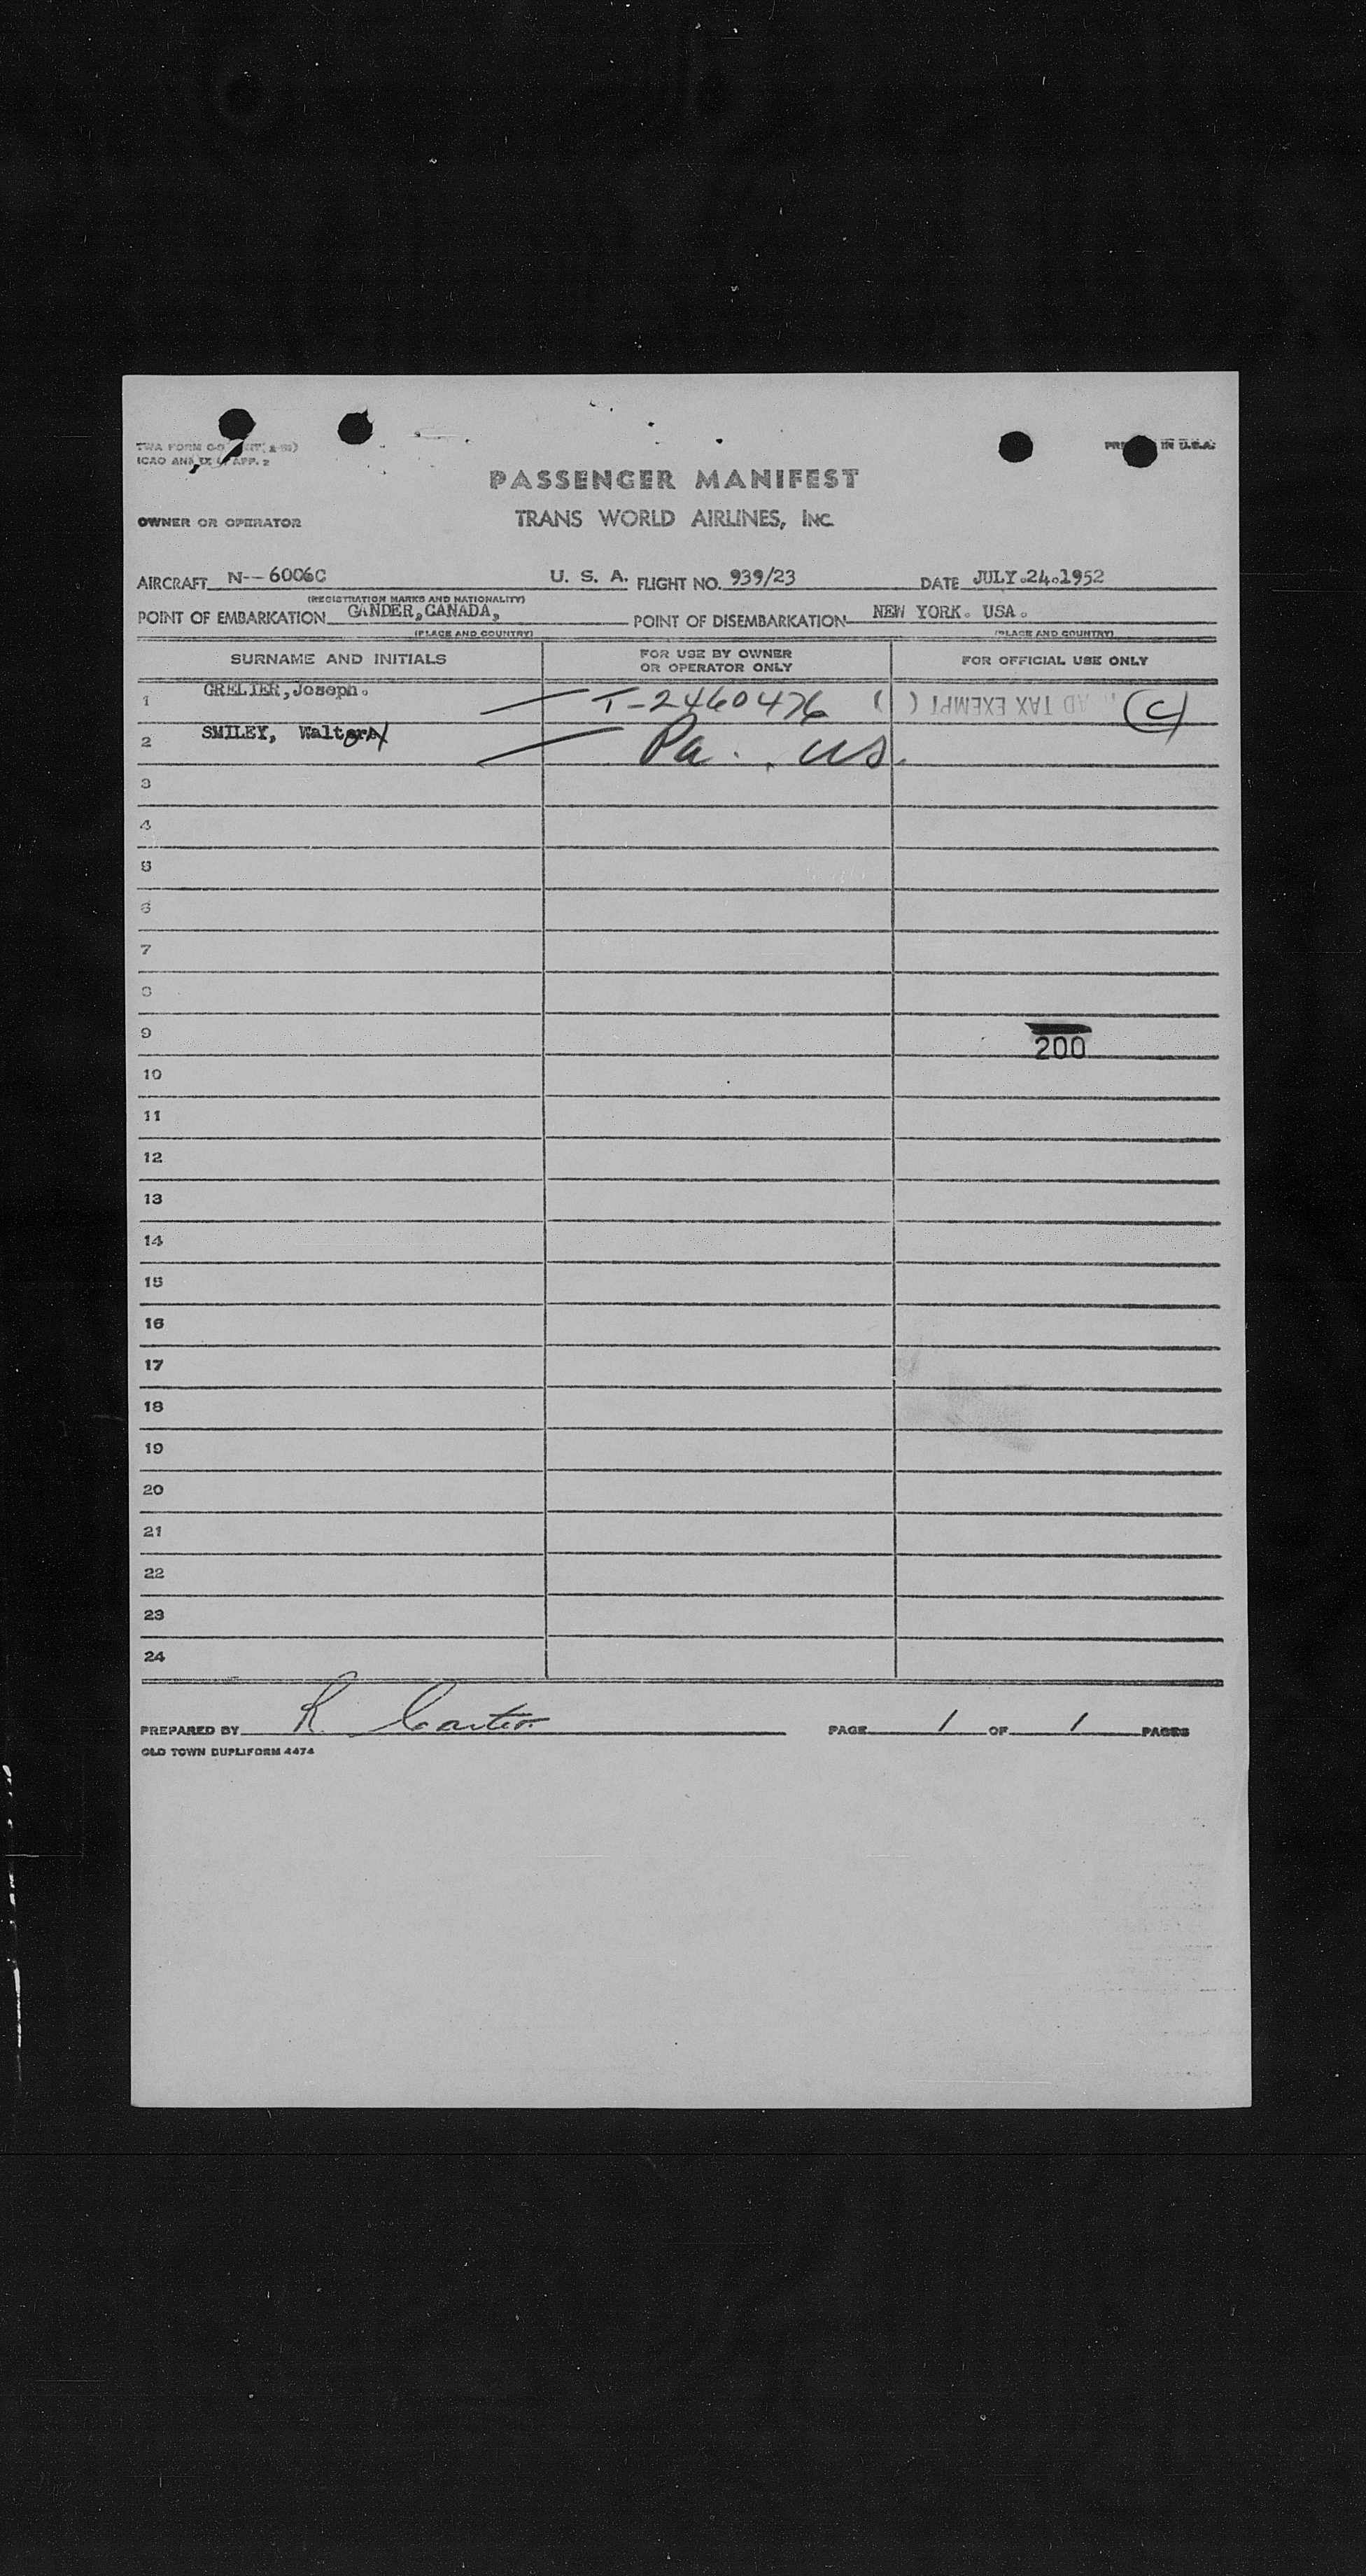 TWA FORM
ICAO ANNEX 9, APP. 2
PRINTED IN U.S.A.
PASSENGER MANIFEST
OWNER OR OPERATOR TRANS WORLD AIRLINES, INC.
AIRCRAFT N--6006C U. S. A. FLIGHT NO. 939/23 DATE JULY.24.1952
(REGISTRATION MARKS AND NATIONALITY)
POINT OF EMBARKATION GANDER,CANADA, POINT OF DISEMBARKATION NEW YORK. USA.
(PLACE AND COUNTRY) (PLACE AND COUNTRY)
SURNAME AND INITIALS FOR USE BY OWNER OR OPERATOR ONLY FOR OFFICIAL USE ONLY
1 GRELIER,Joseph. T-2460476 ( ) TAX EXEMPT (C)
2 SMILEY, Walter Pa. US.
3
4
5
6
7
8
9
200
10
11
12
13
14
15
16
17
18
19
20
21
22
23
24
PREPARED BY R. Carter PAGE 1 OF 1 PAGES
OLD TOWN DUPLIFORM 4474